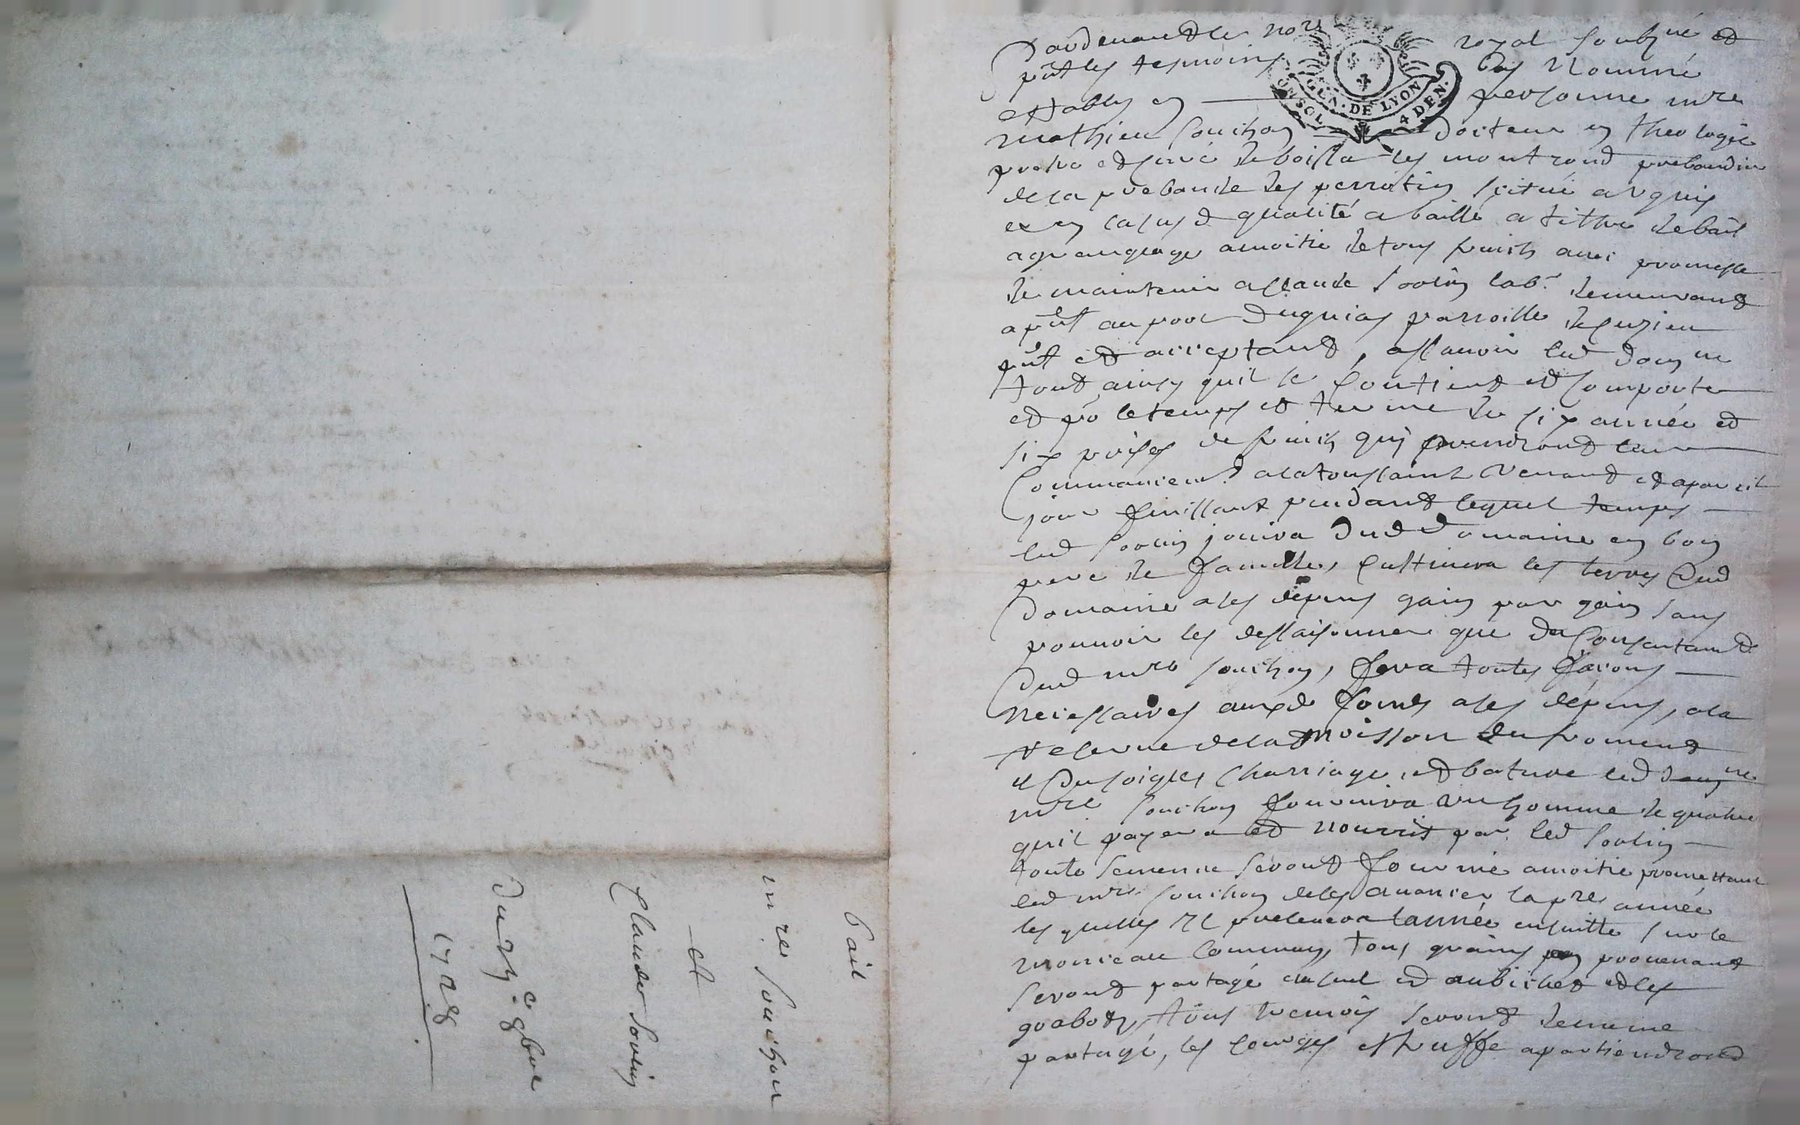 Bail
mre Souchon
et
Claude Sovin
Du 25e 9bre
1728
Pardevant le nore royal soubzné et
pnt les tesmoins bas nommé
estably en personne mre
mathieu Souchon docteur en theologie
prestre et curé de boisset les montrond prebandier
de la prebande des perrotin scitué
en qualité a baillé a tiltre de bail
a grangeage a moitié de tous fruits avec promesse
de maintenir a Claude Sovin labr demeurant
a pnt au paroisse de Cuzieu
pnt et acceptant, assavoir led dom ne
tout ainsy quil se contient et comporte
et po le temps et terme de six année et
six prises de fruits quy prendront leur
commancemt a la toussaint venant et a pareil
jour finissant pendant lequel temps
led Sovin jouira dud domaine en bon
pere de famille, cultivera les terres dud
domaine a ses dépens gain par gain sans
pouvoir les dessaisonner que du consentamt
dud mre Souchon, fera toutes façons
necessaires auxd fonds a ses dépens, a la
reserve de la moisson du froment
et du soigle, charriage, et bature
mre Souchon fournira un homme de quatre
qu'il payera et nourris par led Sovin
toute semence seront fournie a moitié promettant
led mre Souchon de les avancer la pre année
les quelles Il prelevera l'année ensuitte sur le
monceau commun, tous grains en provenant
seront partagé et au bichet et les
tous tremois seront de meme
partagé, les courges et truffe apartiendront
GEN. DE LYON
UN SOL 4 DEN.